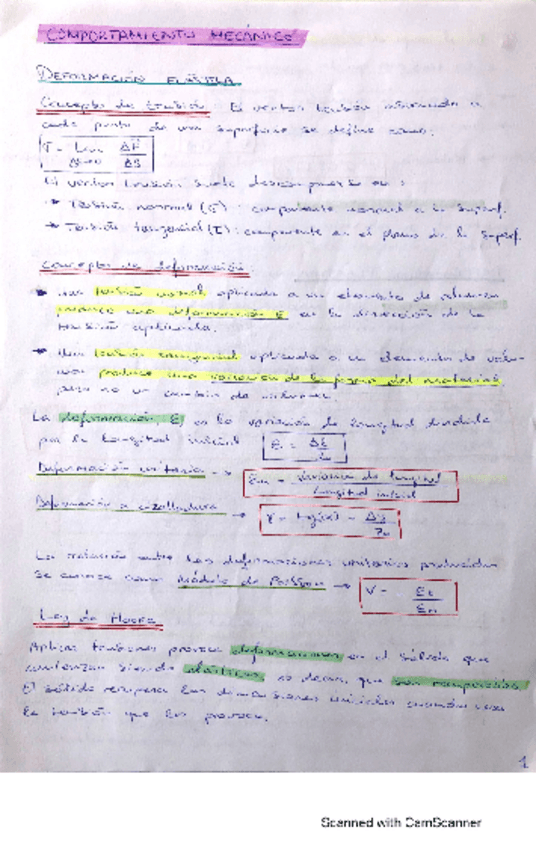 COMPORTAMIENTO MECÁNICO
DEFORMACIÓN ELÁSTICA
Concepto de tensión: El vector tensión asociado a
cada punto de una superficie se define como:
σ = Lim ΔF / ΔS
ΔS→0
El vector tensión suele descomponerse en:
→ Tensión normal (σ): componente normal a la superf.
→ Tensión tangencial (τ): componente en el plano de la superf.
Concepto de deformación
Una tensión normal aplicada a un elemento de volumen
produce una deformación ε en la dirección de la
tensión aplicada.
Una tensión tangencial aplicada a un elemento de volu-
men produce una variación de la forma del material
pero no un cambio de volumen.
La deformación ε es la variación de longitud dividida
por la longitud inicial
Deformación unitaria → = variación de longitud / longitud inicial
Deformación x cizalladura → γ =
La relación entre las deformaciones unitarias producidas
se conoce como módulo de Poisson →
Ley de Hooke
Aplicar tensiones provoca deformaciones en el sólido que
comienzan siendo elásticas, es decir, que son recuperables.
El sólido recupera las dimensiones iniciales cuando cesa
la tensión que las provoca.
1
Scanned with CamScanner